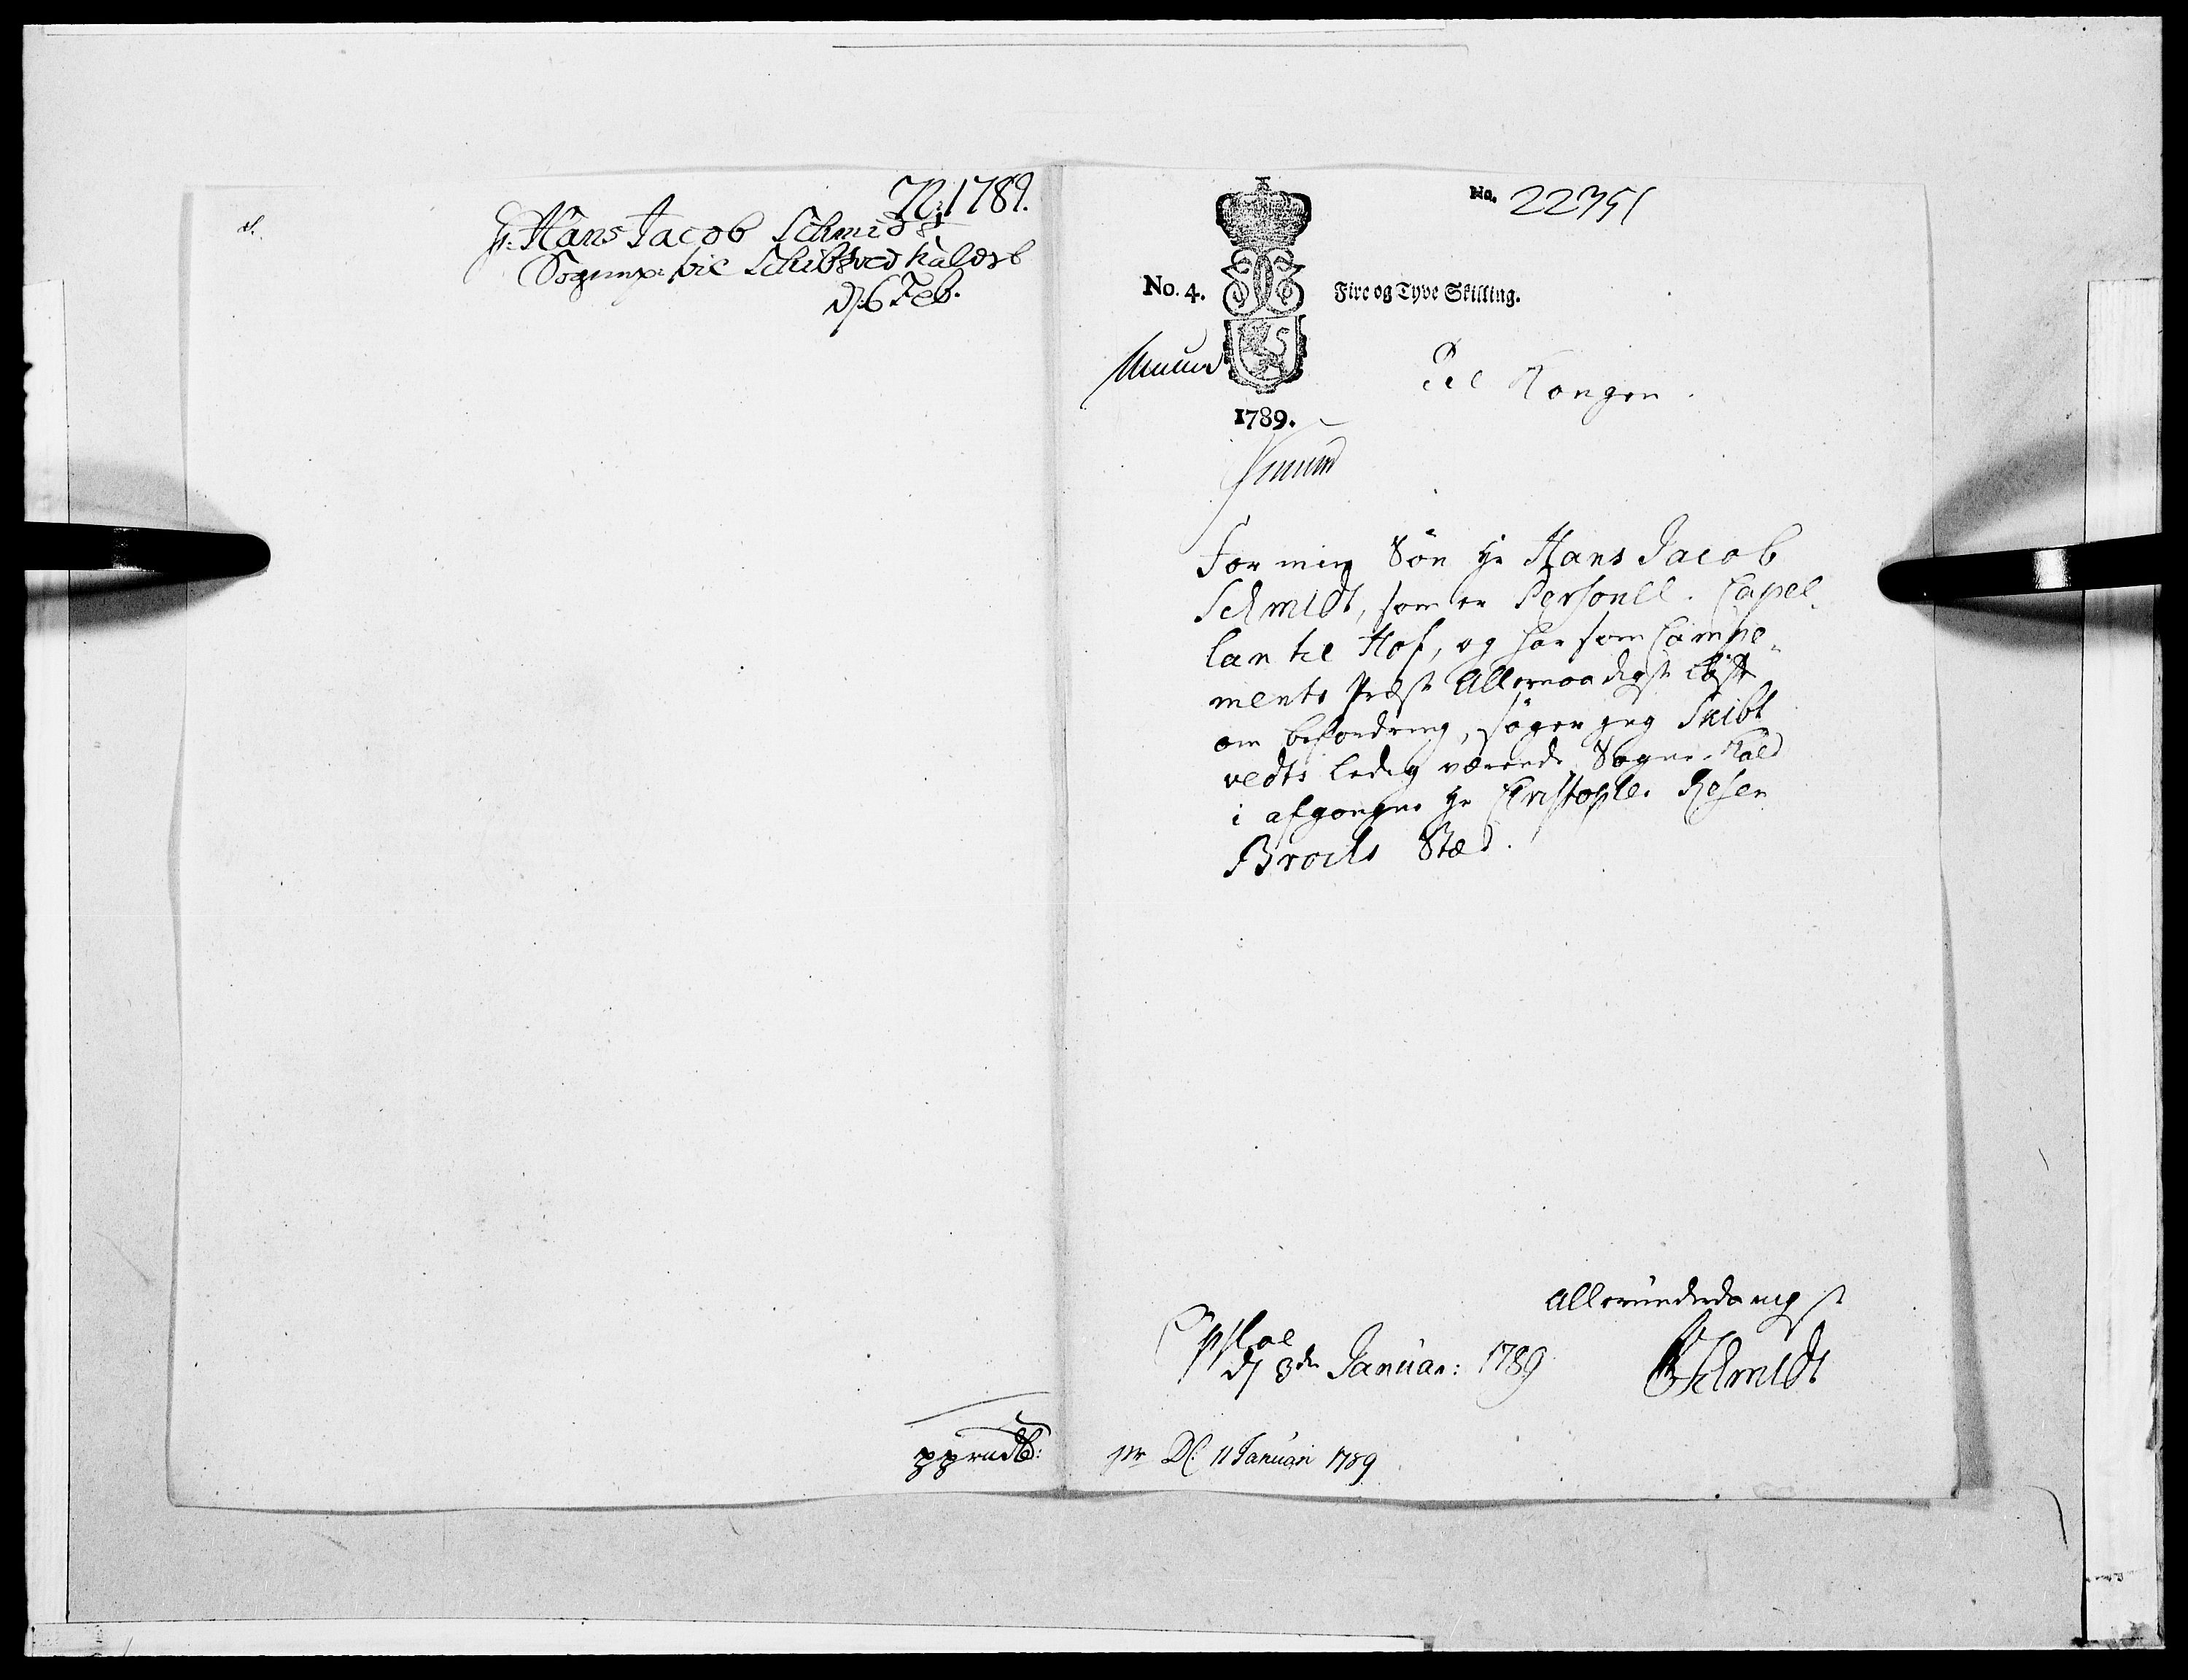 72. 1789.
Hr: Hans Jacob Schmidt
Sognepr: til Schibtved Kaldet
d: 6 Feb.
No. 22351
No. 4.
Fire og Tyve Skilling.
1789.
Til Kongen.
For min Søn Hr Hans Jacob
Schmidt, som er Personel. Capel-
lan til Hof, og har som Campe-
ments Præst Allernaadigst Løfte
om befordring, søger jeg Skibt
vedts ledig værende Sogne-Kald
i afgangne Hr Christopher Rosen
Brocks Stæd.
Allerunderdanigst
Schmidt
d 3de Januar: 1789
pr Dl: 11 Januari 1789